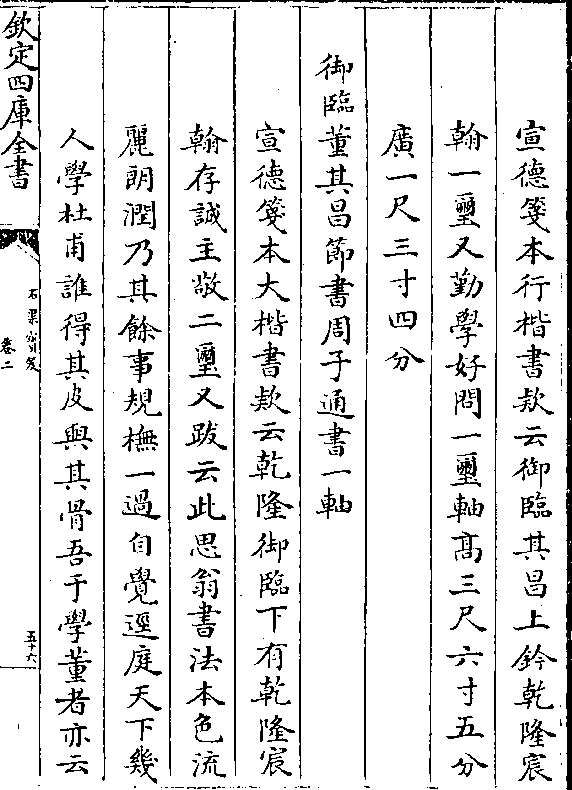 宣德箋本行楷書款云御臨其昌上鈐乾隆宸
翰一璽又勤學好問一璽軸髙三尺六寸五分
廣一尺三寸四分
御臨董其昌節書周子通書一軸
宣德箋本大楷書款云乾隆御臨下有乾隆宸
翰存誠主敬二璽又跋云此思翁書法本色流
麗朗潤乃其餘事規橅一過自覺逕庭天下幾
人學杜甫誰得其皮與其骨吾于學董者亦云
欽定四庫全書
石渠寳笈
卷二
五十六